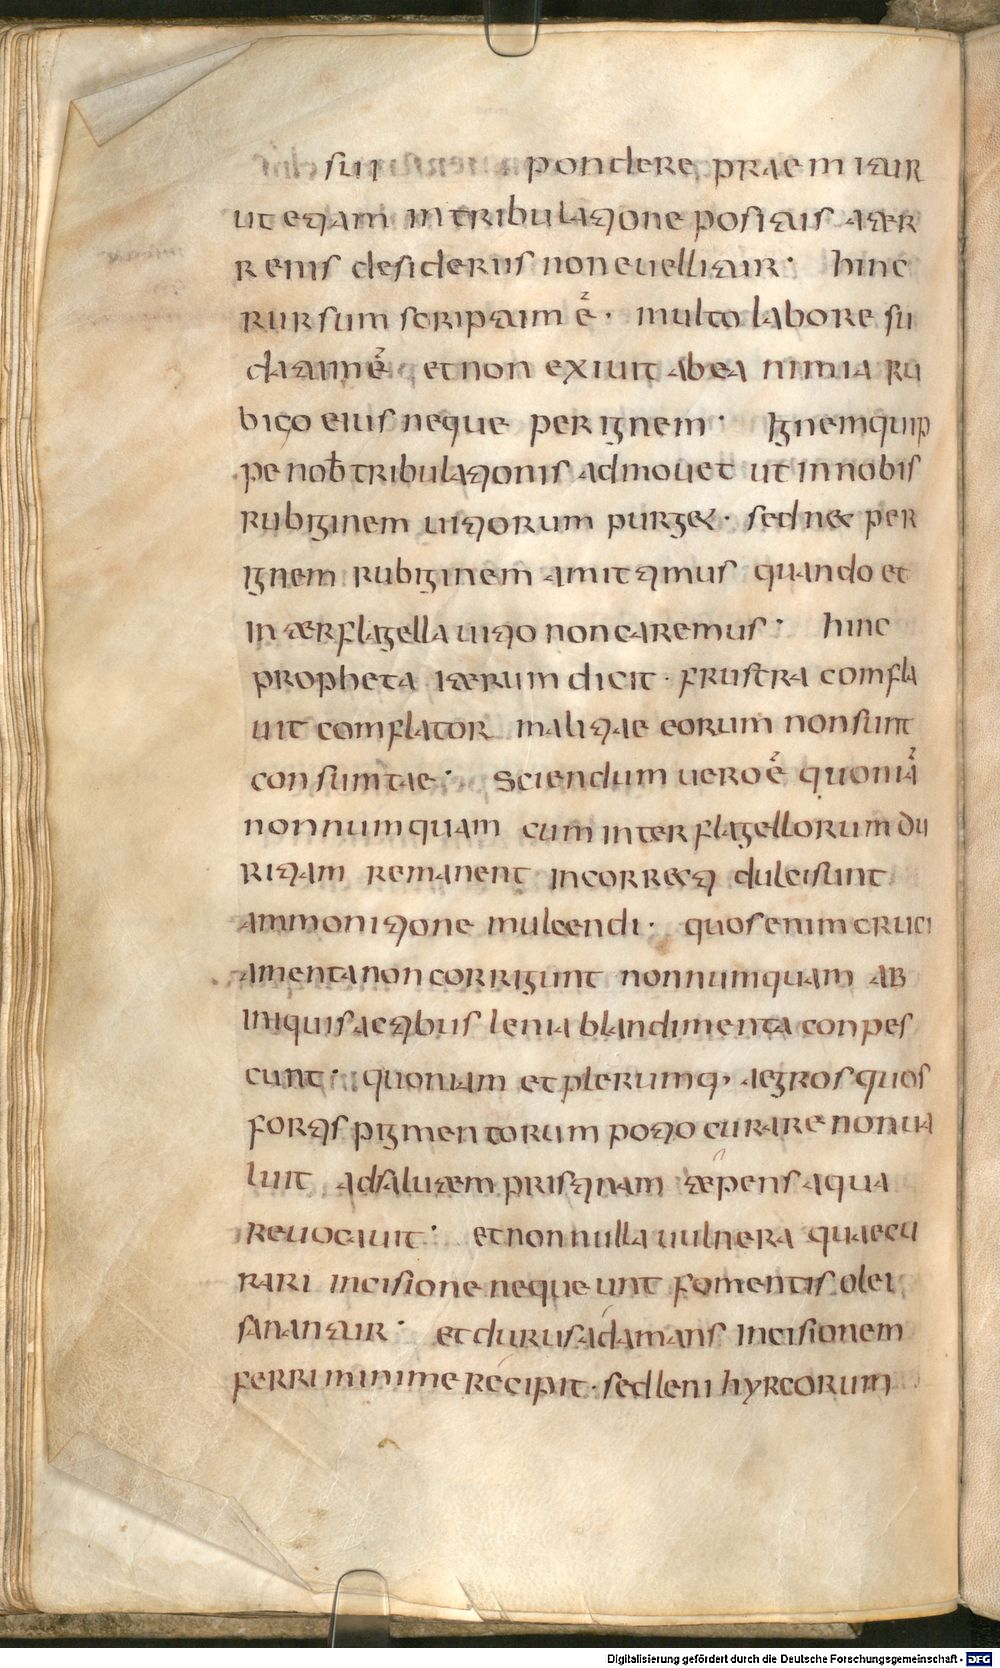 sui pondere praemiatur
ut etiam in tribulatione positus a ter
renis desideriis non evellitur · hinc
rursum scriptum ē · multo labore su
datum ē et non exivit ab ea nimia ru
bigo eius neque per ignem · Ignem quip
pe nob tribulationis admovet ut in nobis
rubiginem vitiorum purget · sed nec per
ignem rubiginem amittimus quando et
inter flagella vitio non caremus · hinc
propheta iterum dicit · frustra comfla
vit comflator malitiae eorum non sunt
consumtae · Sciendum vero ē quoniā
nonnumquam cum inter flagellorum du
ritiam remanent incorrecti dulci sunt
ammonitione mulcendi · quos enim cruci
amenta non corrigunt nonnumquam ab
iniquis actibus lenia blandimenta conpes
cunt · quoniam et plerumq, aegros quos
fortis pigmentorum potio curare non va
luit ad salutem pristinam tepens aqua
revocavit · et nonnulla vulnera quae cu
rari incisione nequeunt fomentis olei
sanantur · et durus adamans incisionem
ferri minime recipit · sed leni hyrcorum
Digitalisierung gefördert durch die Deutsche Forschungsgemeinschaft - DFG